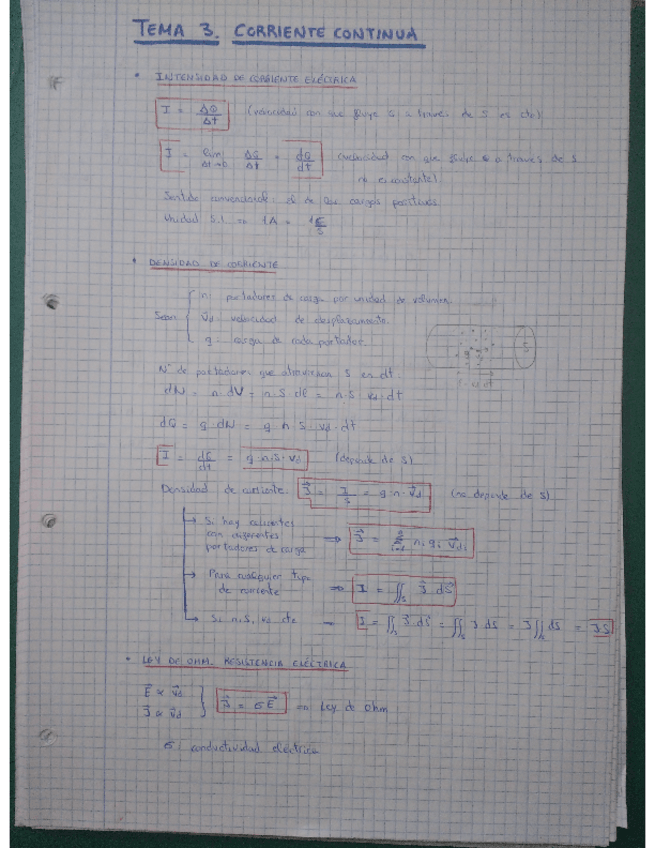 TEMA 3. CORRIENTE CONTINUA
• INTENSIDAD DE CORRIENTE ELÉCTRICA
I = ΔQ/Δt (velocidad con que fluye a través de S es cte)
I = lim Δt→0 ΔQ/Δt = dQ/dt (velocidad con que fluye a través de S
no es constante)
Sentido convencional: el de las cargas positivas
Unidad S.I. ⇒ 1A = 1C/s
• DENSIDAD DE CORRIENTE
Sean { n: portadores de carga por unidad de volumen
v⃗d: velocidad de desplazamiento.
q: carga de cada portador.
Nº de portadores que atraviesan S en dt
dN = n·dV = n·S·dl = n·S·vd·dt
dQ = q·dN = q·n·S·vd·dt
I = dQ/dt = q·n·S·vd (depende de S)
Densidad de corriente: J⃗ = I/S = q·n·v⃗d (no depende de S)
→ Si hay
con diferentes
portadores de carga ⇒ J⃗ = Σ ni qi v⃗di
→ Para cualquier tipo
de corriente ⇒ I = ∬s J⃗ dS⃗
→ Si n, S, vd cte → I = ∬s J⃗ dS⃗ = ∬s J dS = J ∬s dS = JS
• LEY DE OHM. RESISTENCIA ELÉCTRICA
E⃗ ∝ v⃗d
J⃗ ∝ v⃗d } J⃗ = σE⃗ ⇒ Ley de Ohm
σ: conductividad eléctrica